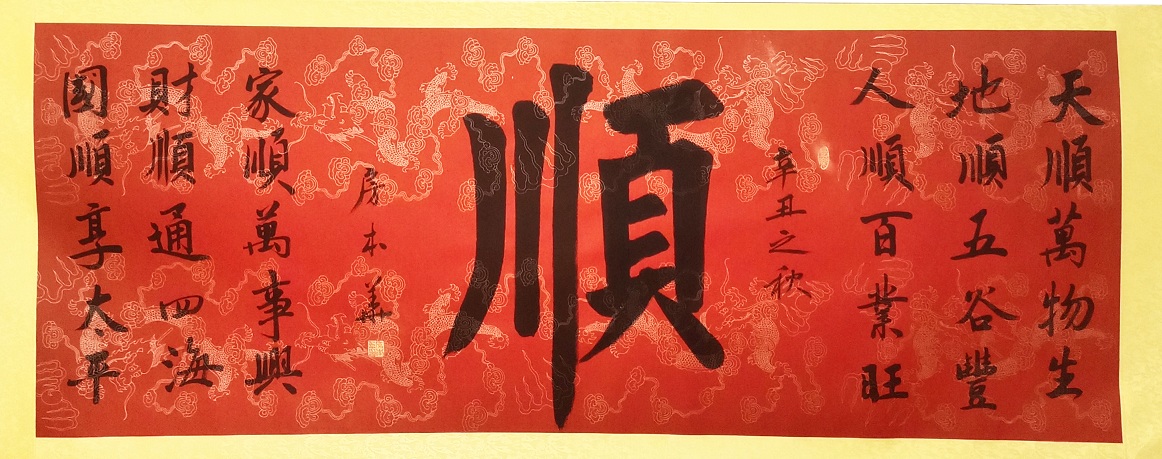 天順萬物生
地順五谷豐
人順百業旺
辛丑之秋
順
房本華
家順萬事興
財順通四海
國順享太平